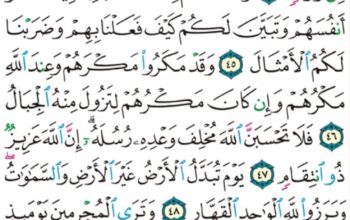 أَنفُسَهُمْ وَتَبَيَّنَ لَكُمْ كَيْفَ فَعَلْنَا بِهِمْ وَضَرَبْنَا
لَكُمُ ٱلْأَمْثَالَ ٤٥ وَقَدْ مَكَرُوا۟ مَكْرَهُمْ وَعِندَ ٱللَّهِ
مَكْرُهُمْ وَإِن كَانَ مَكْرُهُمْ لِتَزُولَ مِنْهُ ٱلْجِبَالُ
٤٦ فَلَا تَحْسَبَنَّ ٱللَّهَ مُخْلِفَ وَعْدِهِۦ رُسُلَهُۥٓ ۗ إِنَّ ٱللَّهَ عَزِيزٌ
ذُو ٱنتِقَامٍ ٤٧ يَوْمَ تُبَدَّلُ ٱلْأَرْضُ غَيْرَ ٱلْأَرْضِ وَٱلسَّمَٰوَٰتُ ۖ
وَبَرَزُوا۟ لِلَّهِ ٱلْوَٰحِدِ ٱلْقَهَّارِ ٤٨ وَتَرَى ٱلْمُجْرِمِينَ يَوْمَئِذٍ